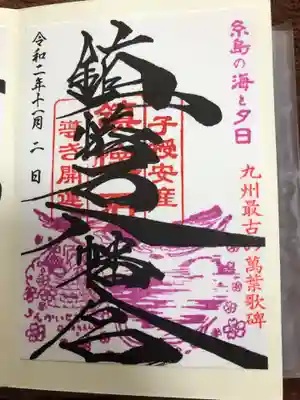 糸島の海と夕日
九州最古の萬葉歌碑
鎮懐石八幡宮
子授安産
鎮懐石
導き開運
令和二年十一月二日